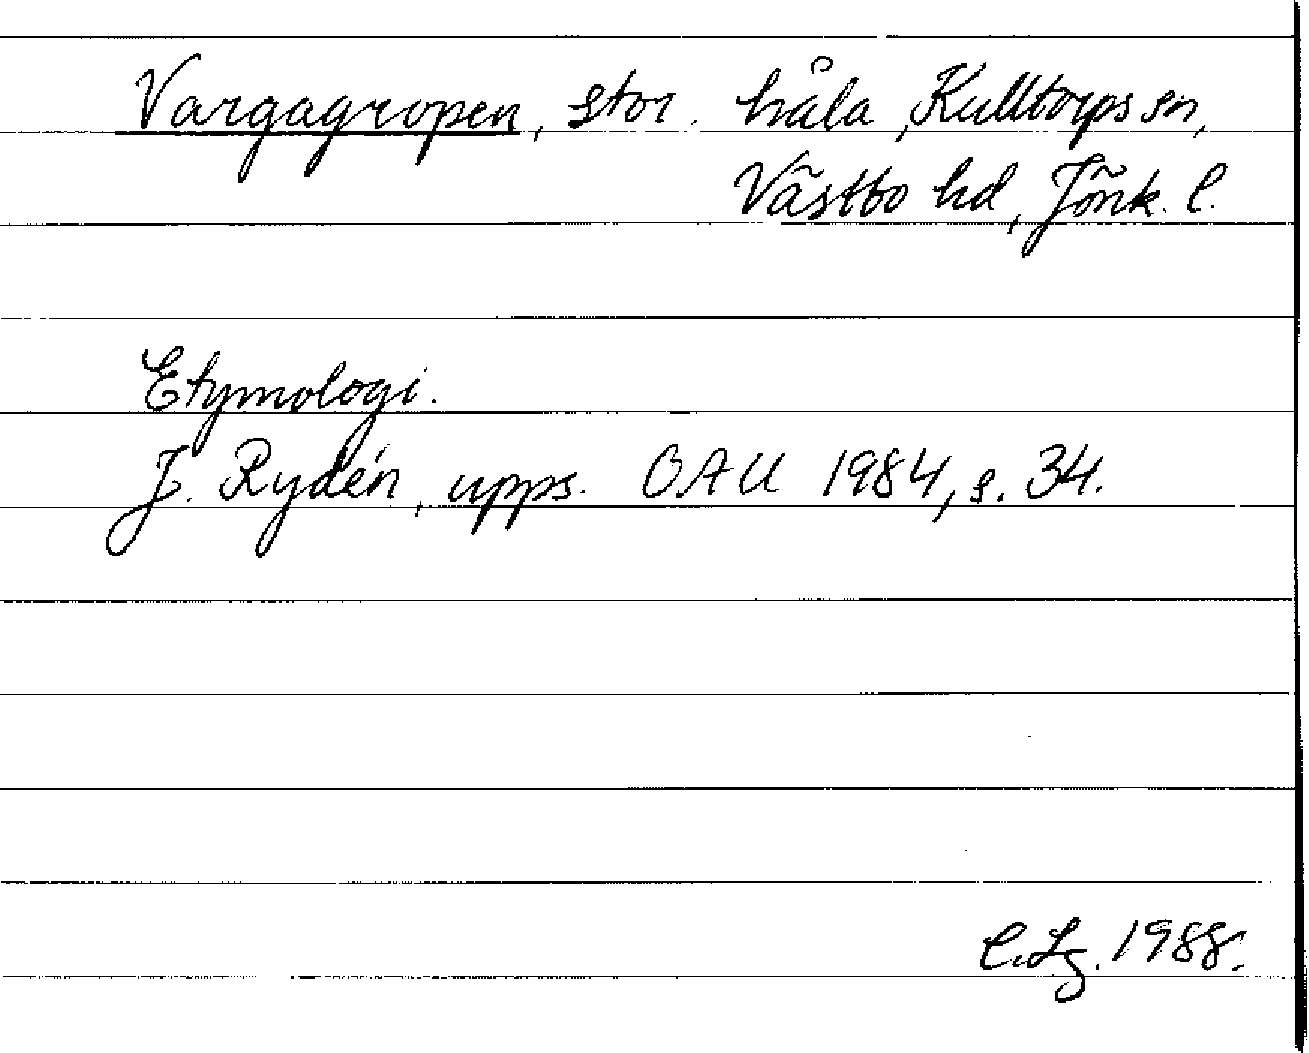 Vargagropen, stor. håla, Kulltorps sn,
Västbo hd, Jönk. l.
Etymologi.
J. Rydén, upps. OAU 1984, s. 34.
C.Lg. 1988.